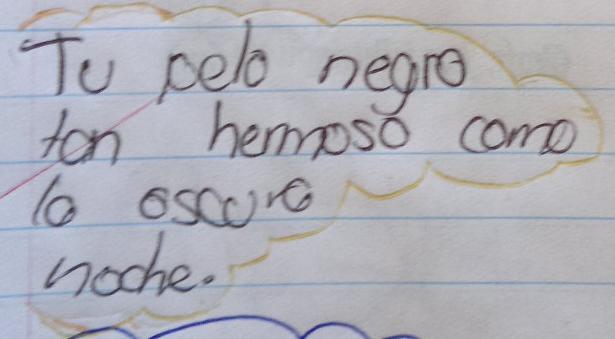 Tu pelo negro
tan hermoso como
la oscura
noche.